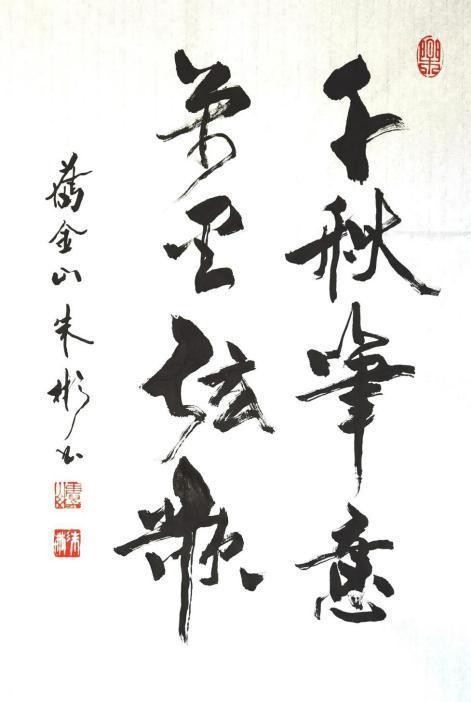 千秋笔意
万里弦歌
旧金山朱彬书